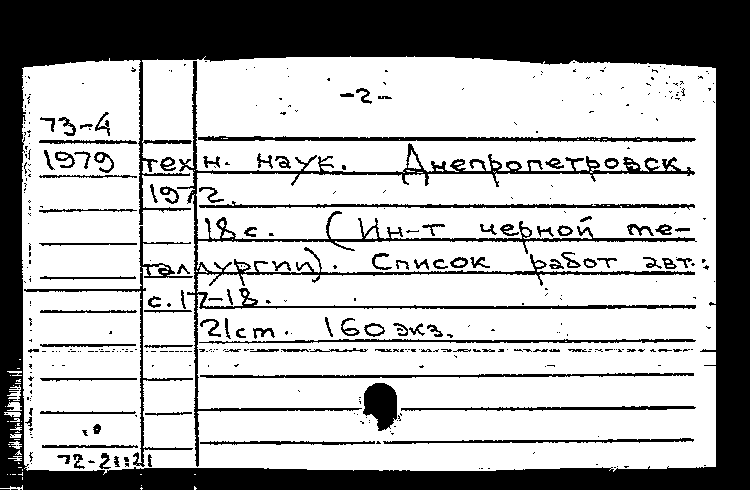 -2-
73-4
1979 техн. наук. Днепропетровск,
1972.
18с. (Ин-т черной ме-
таллургии). Список работ авт.:
с.17-18.
21cm. 160экз.